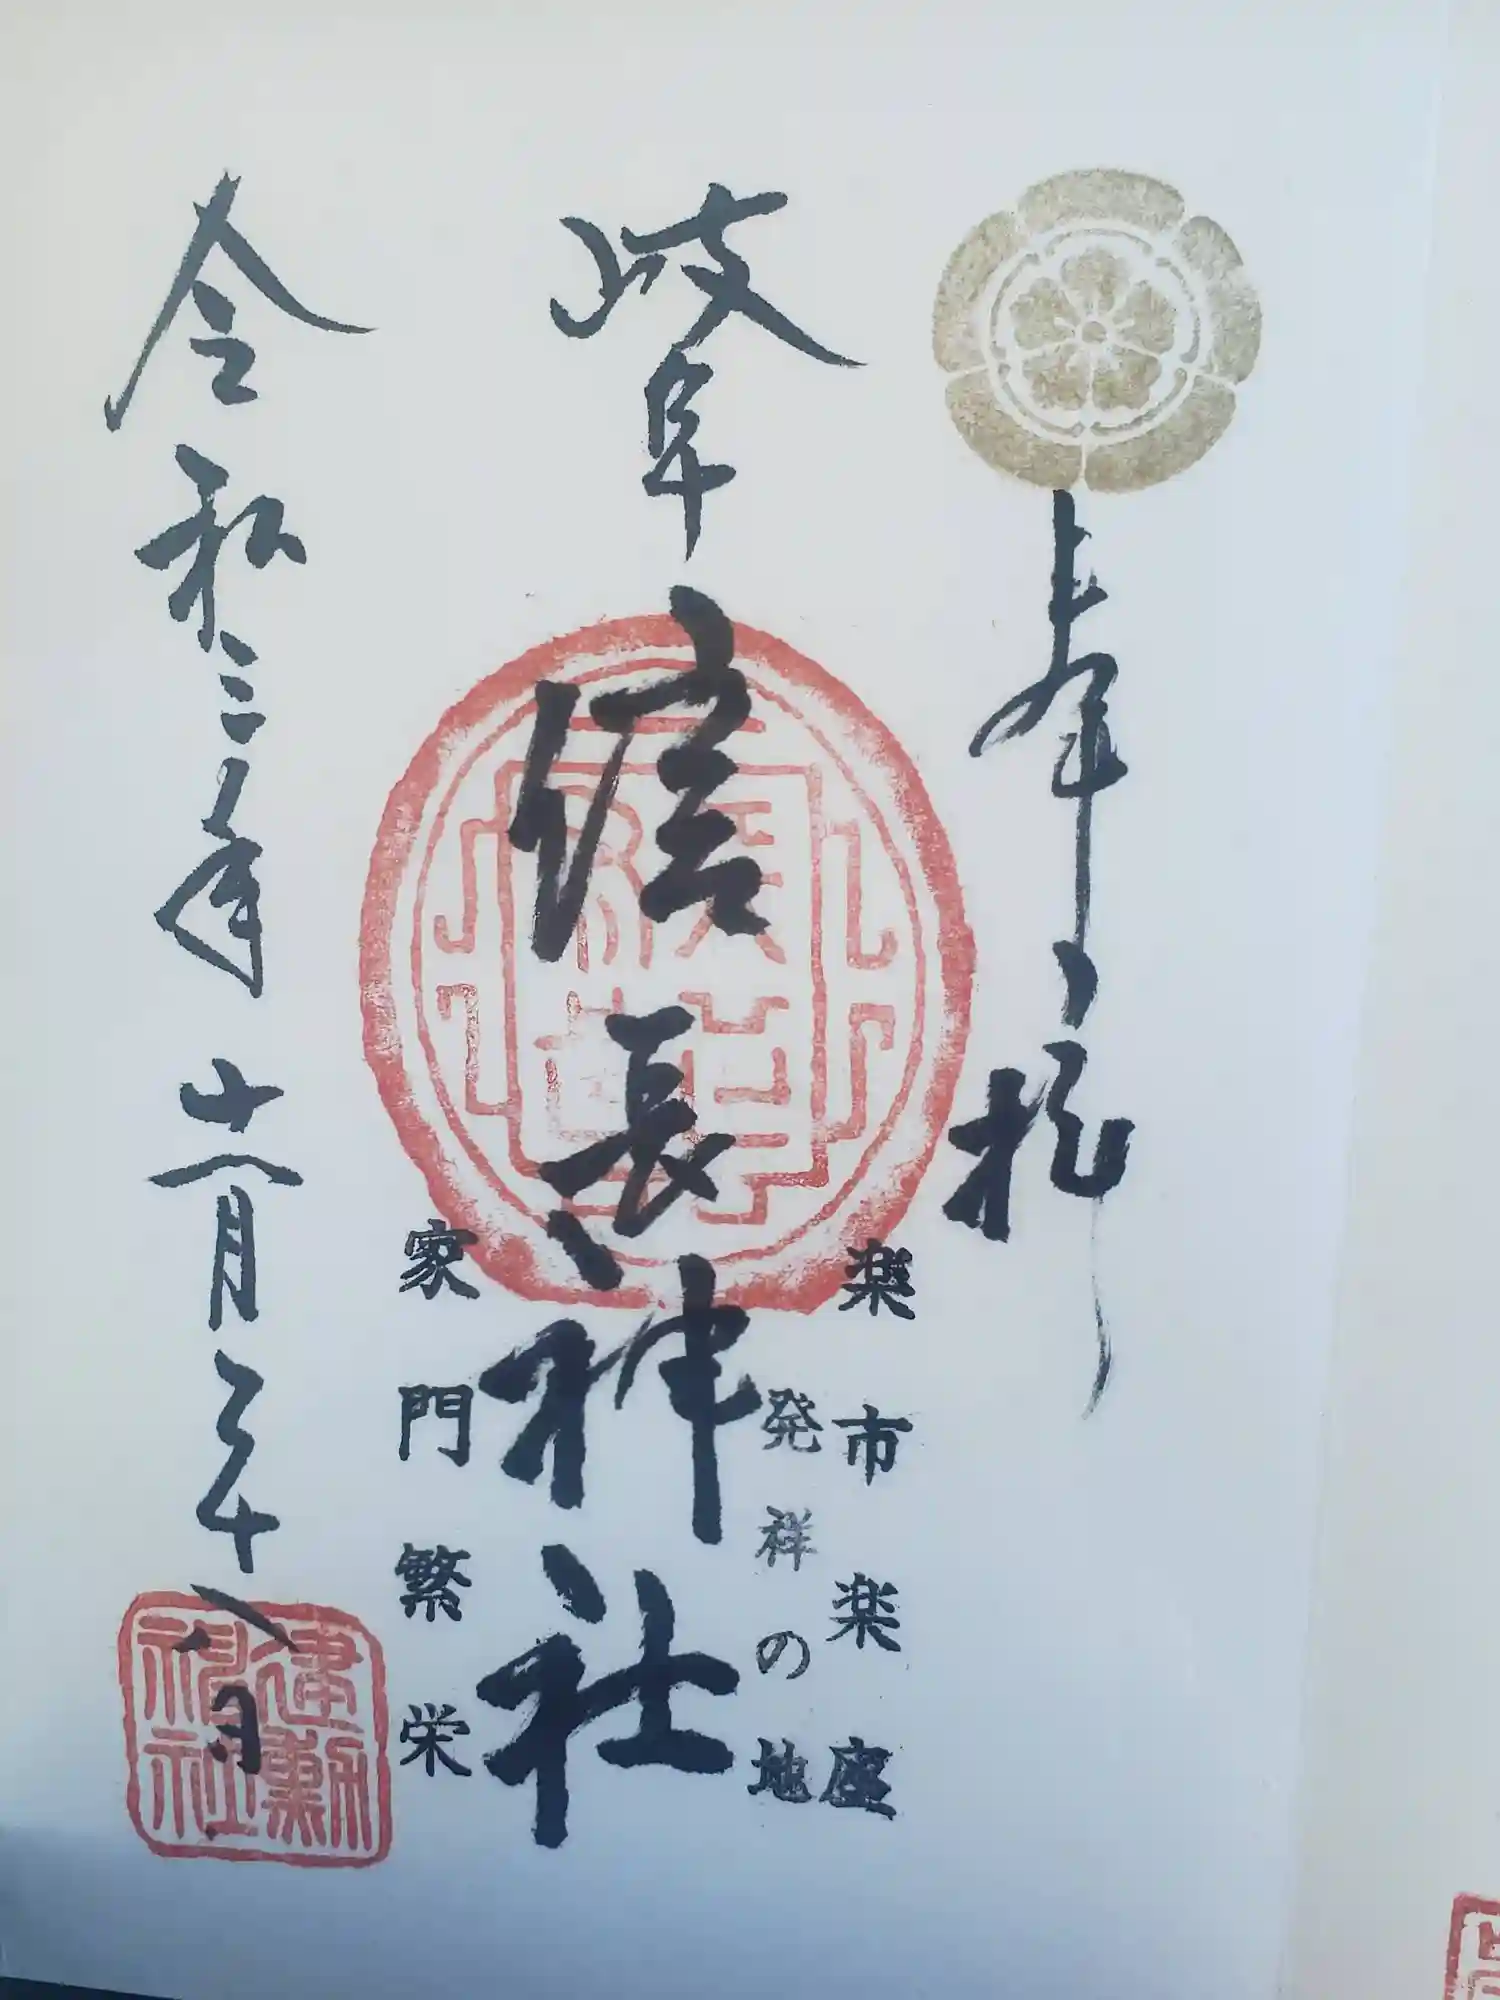 奉拝
楽市楽座
発祥の地
岐阜
信長神社
家門繁栄
令和三年十一月二十八日
建勲
神社